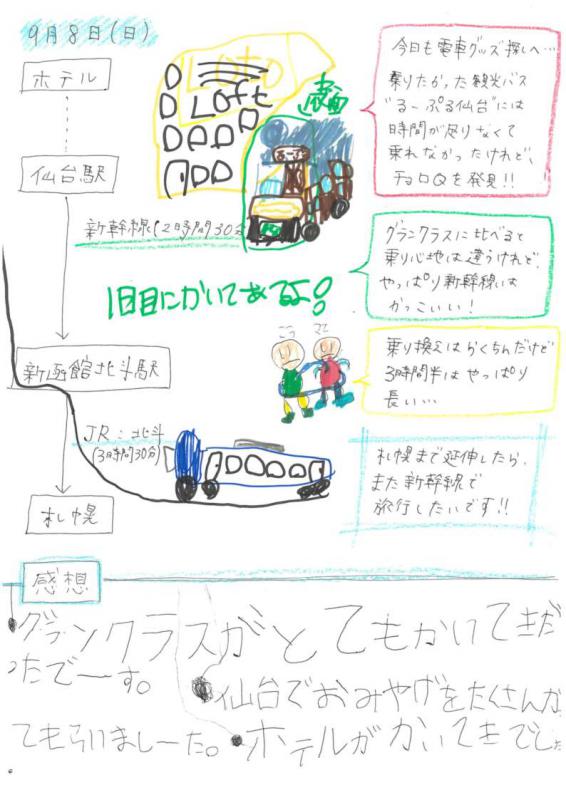 9月8日(日)
ホテル
仙台駅
新幹線(2時間30分
新函館北斗駅
JR:北斗
(3時間30分)
札幌
Loft
表面
1日目にかいてあるよ!
今日も電車グッズ探しへ…
乗りたかった観光バス
"るーぷる仙台"には
時間が足りなくて
乗れなかったけれど、
チョロQを発見!!
グランクラスに比べると
乗り心地は違うけれど、
やっぱり新幹線は
かっこいい!
乗り換えはらくちんだけど
3時間半はやっぱり
長い…
札幌まで延伸したら、
また新幹線で
旅行したいです!!
感想
グランクラスがとてもかいてきだ
ったでーす。
仙台でおみやげをたくさんか
てもらいましーた。ホテルがかいてきでした
。